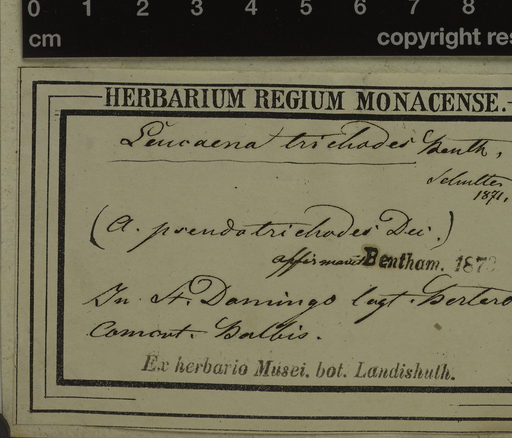 0 1 2 3 4 5 6 7 8
cm copyright res
HERBARIUM REGIUM MONACENSE.
Leucaena trichodes Benth,
1871.
(A. pseudotrichodes Dec.)
affirmavit Bentham. 187
In St. Domingo legt. Bertero
Comont. Balbis.
Ex herbario Musei. bot. Landishuth.